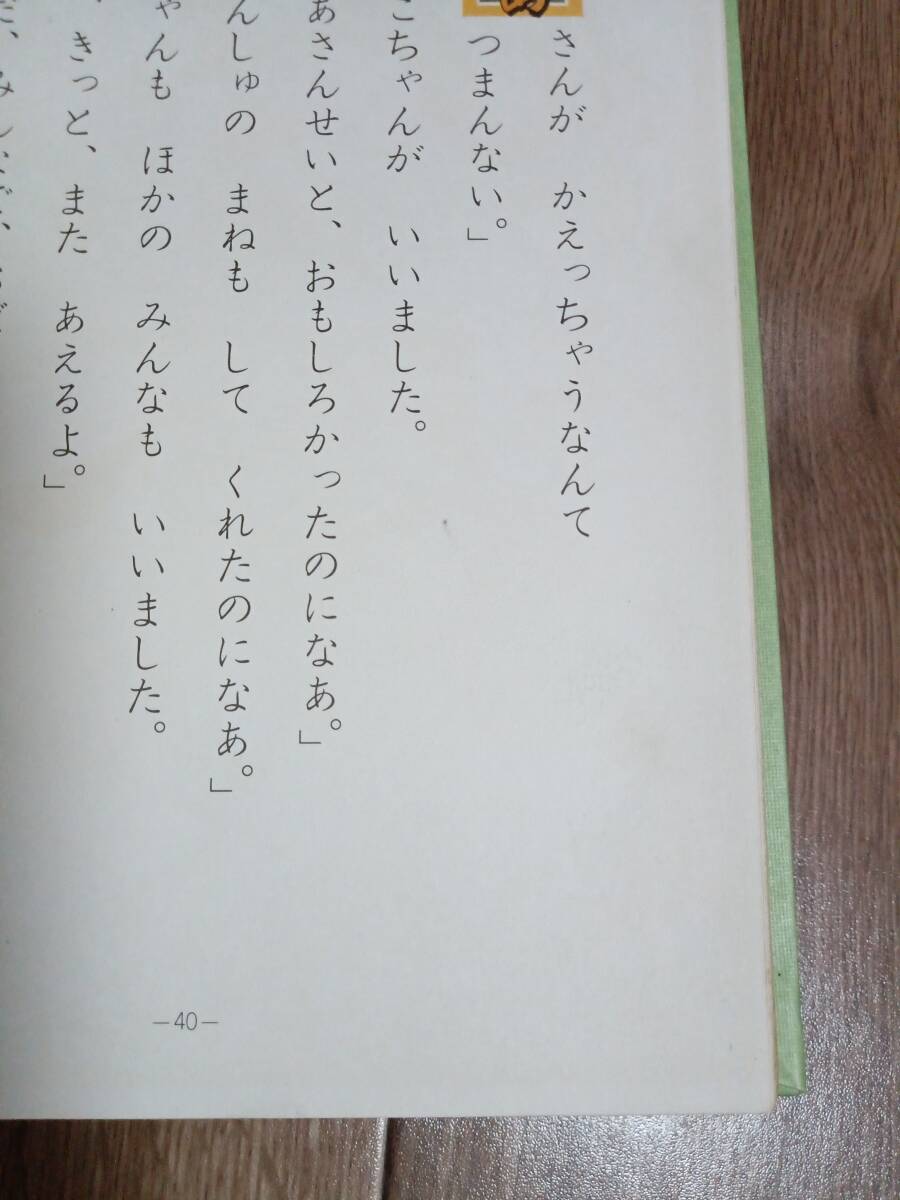 さんが かえっちゃうなんて
つまんない。」
こちゃんが いいました。
あさんせいと、おもしろかったのになあ。」
んしゅの まねも して くれたのになあ。」
ゃんも ほかの みんなも いいました。
きっと、また あえるよ。」
—40—